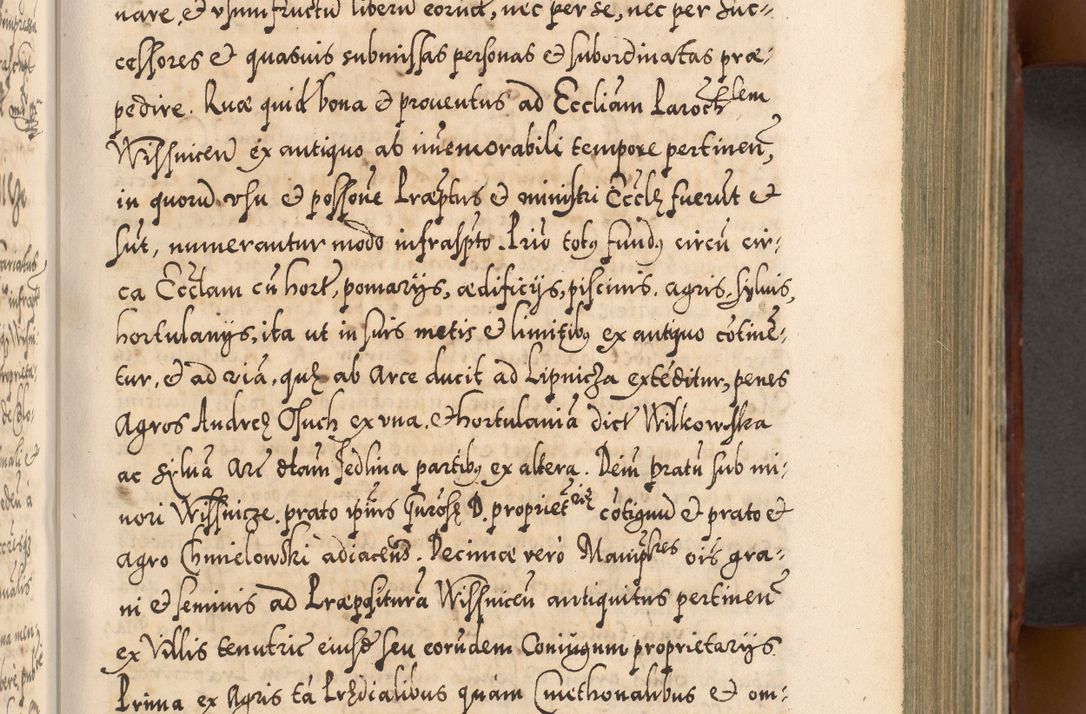 nare, et usumfructu liberu eorud, nec per se, nec per suc-
cessores et quasuis submissas personas et subordinatas præ-
pedire. Quæ quid bona et prouentus ad Eccliam Paroch lem
Wissnicen ex antiquo ab inmemorabili tempore pertinen,
in quoru usu et possone Præptus et ministri Eccle fuerut et
sut, numerantur modo infraspto. Prio totus fundus circu cir-
ca Ecclam cu hort, pomarijs, ædificijs, piscinis, agris, syluis,
hortulanijs, ita ut in suis metis et limitibus ex antiquo cotine-
tur, et ad viã, quæ ab Arce ducit ad Lipnicza exteditur, penes
Agros Andreæ Osuch ex una, et hortulaniã dict Wilkowska
ac syluã Arc dtam Jedlina partibus ex altera. Dein pratu sub mi-
nori Wissnicze, prato ipius Gurosæ D. propriet riæ cotiguu et prato et
agro Chmielowski adiacens. Decimæ vero Manip les ois gra-
ni et seminis ad Præpositurã Wissnicen antiquitus pertinen
ex Villis tenutric eiusd seu eorundem Coniugum proprietarijs.
Prima ex Agris tã Prædialibus quàm Cmethonalibus et om-